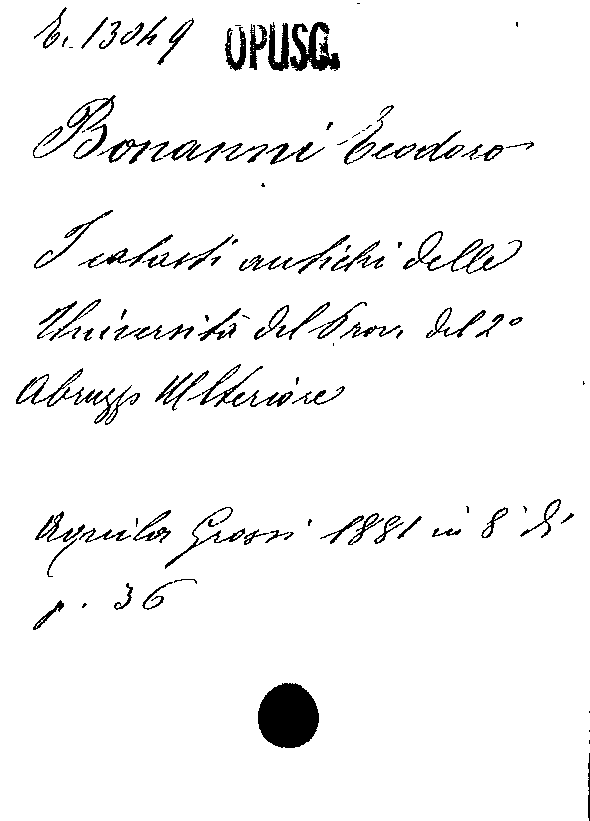 E. 13049 OPUSC.
Bonanni Teodoro
I catasti antichi delle
Università del Prov. del 2°
Abruzzo Ulteriore
Aquila Grossi 1881 in 8° di
p. 36